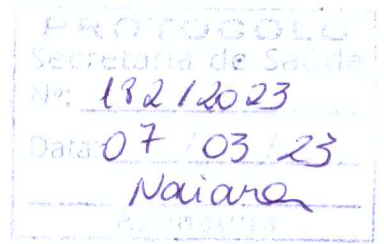 PROTOCOLO
Secretaria de Saúde
Nº: 182/2023
Data: 07/03/23
Naiara
Assinatura